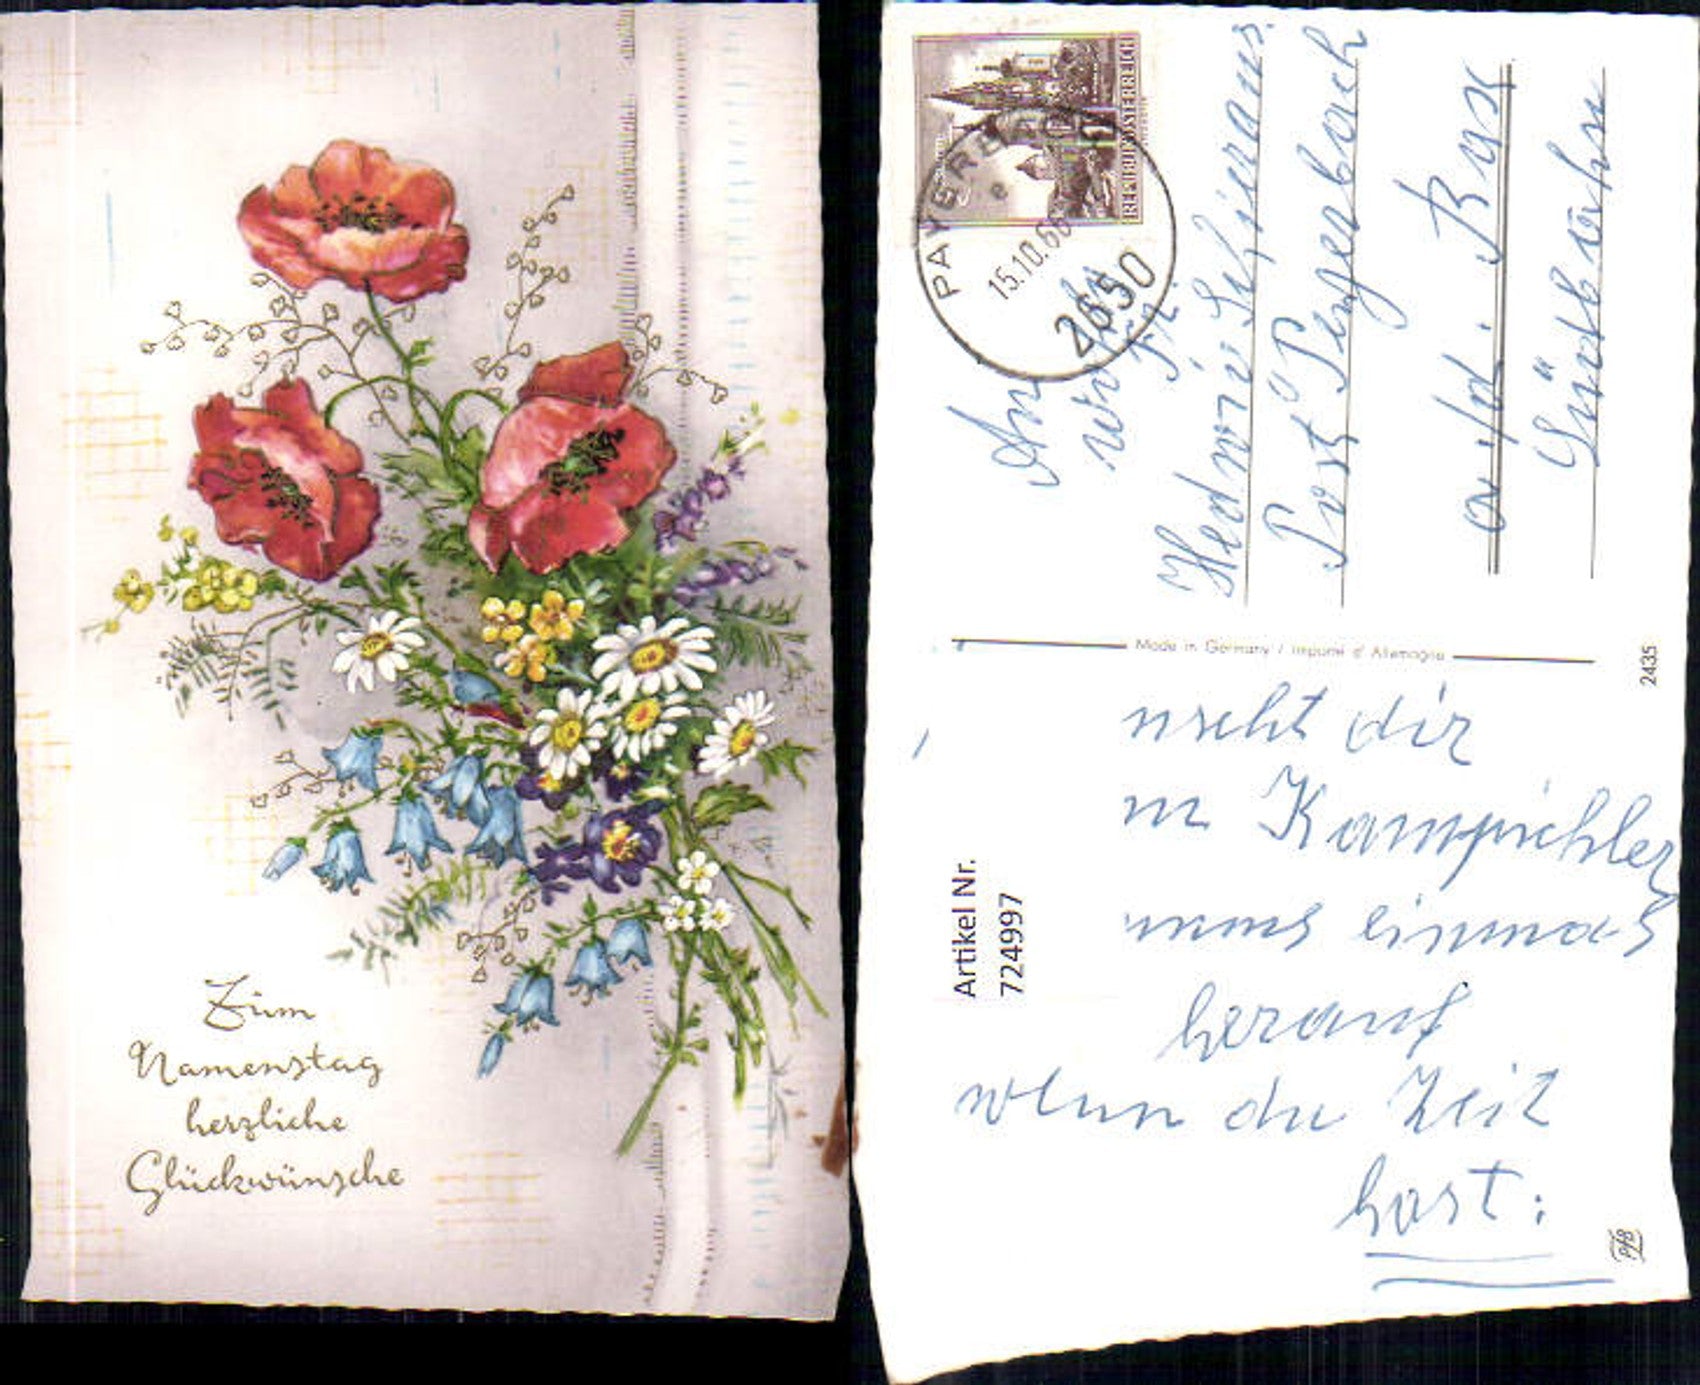 Zum
Namenstag
herzliche
Glückwünsche
REPUBLIK ÖSTERREICH
PAYERB
e
15.10.66
2650
An
Fr.
Hedwi
Post Payerbach
a/d. Bax
Südbahn
Made in Germany / Importé d'Allemagne
2435
Artikel Nr.
724997
nscht dir
m Kampichler
einmal
herauf
wenn du Zeit
hast:
PfB